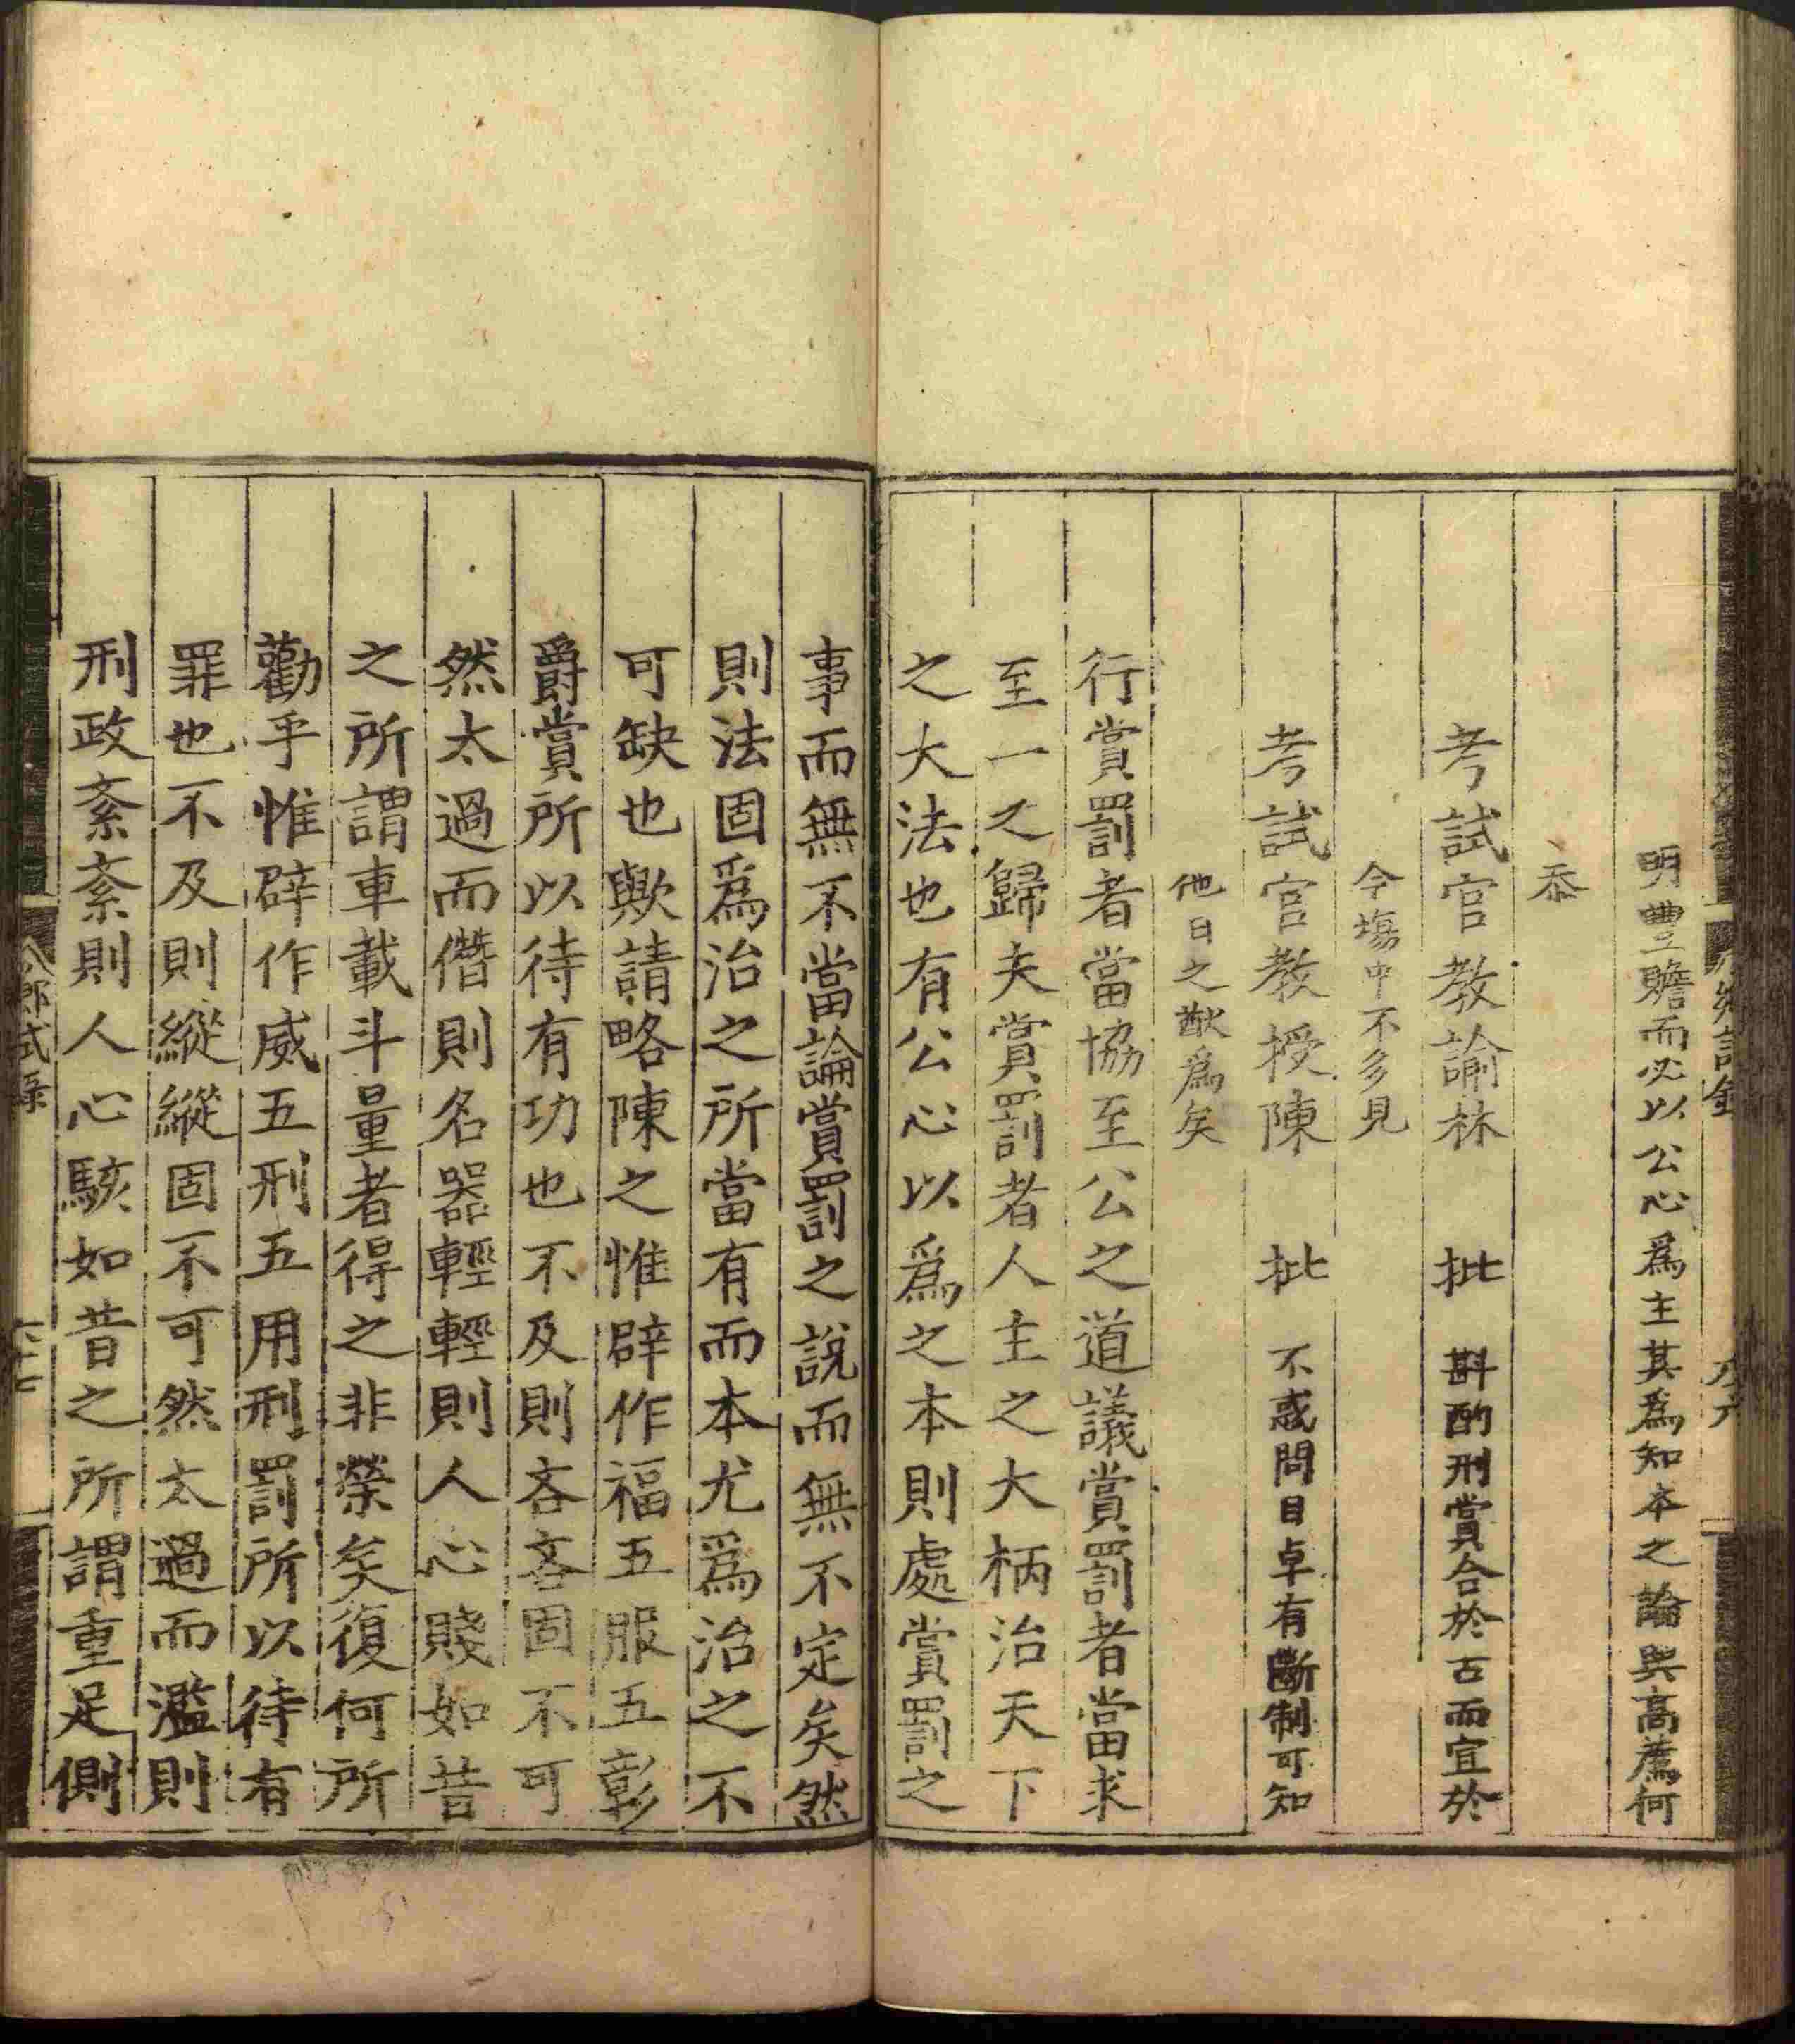 明豐贍而必以公心爲主其爲知本之論與高薦何
忝
考試官教諭林 批 斟酌刑賞合於古而宜於
今場中不多見
考試官教授陳 批 不惑問目卓有斷制可知
他日之猷爲矣
行賞罰者當協至公之道議賞罰者當求
至一之歸夫賞罰者人主之大柄治天下
之大法也有公心以爲之本則處賞罰之
事而無不當論賞罰之說而無不定矣然
則法固爲治之所當有而本尤爲治之不
可缺也歟請略陳之惟辟作福五服五彰
爵賞所以待有功也不及則吝吝固不可
然太過而僭則名器輕輕則人心賤如昔
之所謂車載斗量者得之非榮矣復何所
勸乎惟辟作威五刑五用刑罰所以待有
罪也不及則縱縱固不可然太過而濫則
刑政紊紊則人心駭如昔之所謂重足側